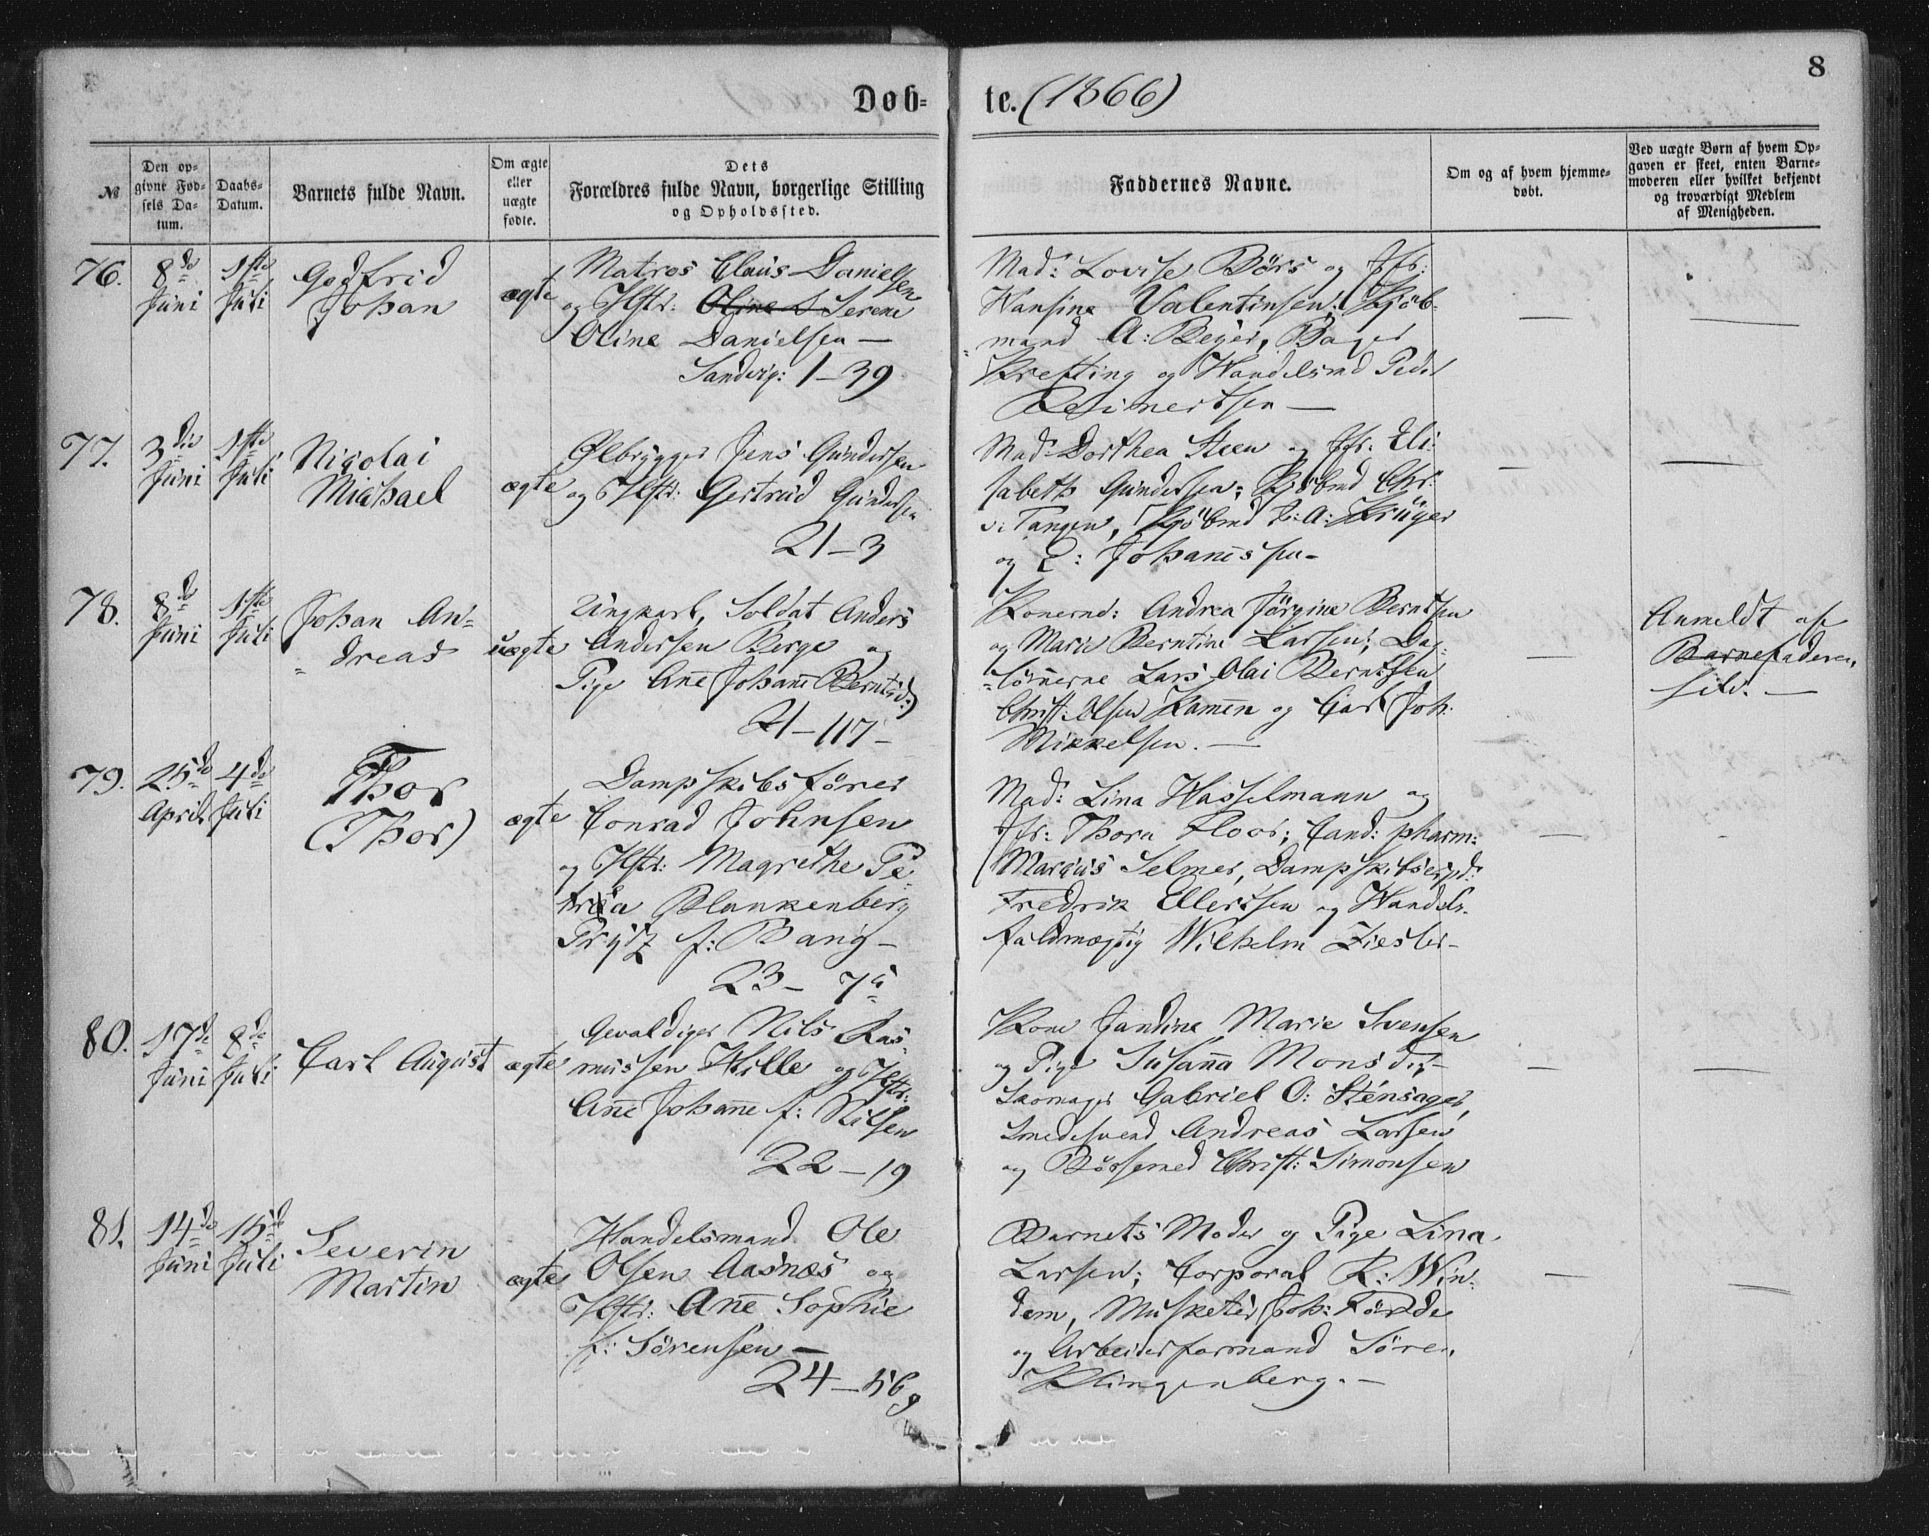 8
Døb- te. (1866)
№
Den op-
givne Fød-
sels Da-
tum.
Daabs-
Datum.
Barnets fulde Navn.
Om ægte
eller
uægte
fødte.
Dets
Forældres fulde Navn, borgerlige Stilling
og Opholdssted.
Faddernes Navne.
Om og af hvem hjemme-
døbt.
Ved uægte Børn af hvem Op-
gaven er skeet, enten Barne-
moderen eller hvilket bekjendt
og troværdigt Medlem
af Menigheden.
76.
8de
Juni
1ste
Juli
Godfrid
Johan
ægte
Matros Claus Danielsen
og Hstr: Oline S Serene
Oline Danielsen —
Sandvig: 1–39
Mad: Lovise Børs og Jfr:
Hansine Valentinsen; Kjøb-
mand A: Beyer, Bager
Krefting og Handelsmd Peder
Reimertsen —
—
—
77.
3die
Juni
1ste
Juli
Nicolai
Michael
ægte
Ølbrygger Jens Gundersen
og Hstr: Gertrud Gundersen
21–3
Mad: Dorthea Steen og Jfr: Eli-
sabeth Gundersen; Kjøbmd Chr:
v: Tangen, Kjöbmd F: A: Krüger
og L: Johanesen –
—
—
78.
8de
Juni
1ste
Juli
Johan An-
dreas
uægte
Ungkarl, Soldat Anders
Andersen Berge og
Pige Ane Johane Berntsd:)
21–117–
Konerne: Andrea Jörgine Berntsen
og Marie Berntine Larsen; Dag-
lönnerne Lars Olai Berntsen
Christ: Olsen Hamen og Carl Joh:
Mikkelsen. —
—
Anmeldt af
Barnefaderen
selv. —
79.
25de
April
4de
Juli
Thor
(Thor)
ægte
Dampskibsförer
Conrad Johnsen
og Hstr: Magrethe Pe-
trea Blankenberg
Prytz f: Bang –
23– 7a
Mad: Lina Hasselmann og
Jfr: Thora Floor; Cand: pharm:
Marcus Selmer, Dampskibsexpd:
Fredrik Ellertsen og Handels-
fuldmægtig Wilhelm Ziesler –
—
80.
17de
Juni
8de
Juli
Carl August
ægte
Gevaldiger Nils Ras-
mussen Hille og Hstr:
Ane Johanne f: Nilsen
22–19
Kone Jandine Marie Svensen
og Pige Susanna Monsdtr
Skomager Gabriel O: Stensager,
Smedesvend Andreas Larsen
og Børsemed Christ: Simonsen
—
—
81.
14de
Juni
15de
Juli
Severin
Martin
ægte
Handelsmand Ole
Olsen Aasnæs og
Hstr: Ane Sophie
f: Sörensen —
24–56 g
Barnets Moder og Pige Lina
Larsen; Corporal R: Win-
dem, Musketér Joh: Förde
og Arbeidsformand Sören
Klingenberg. –
—
—